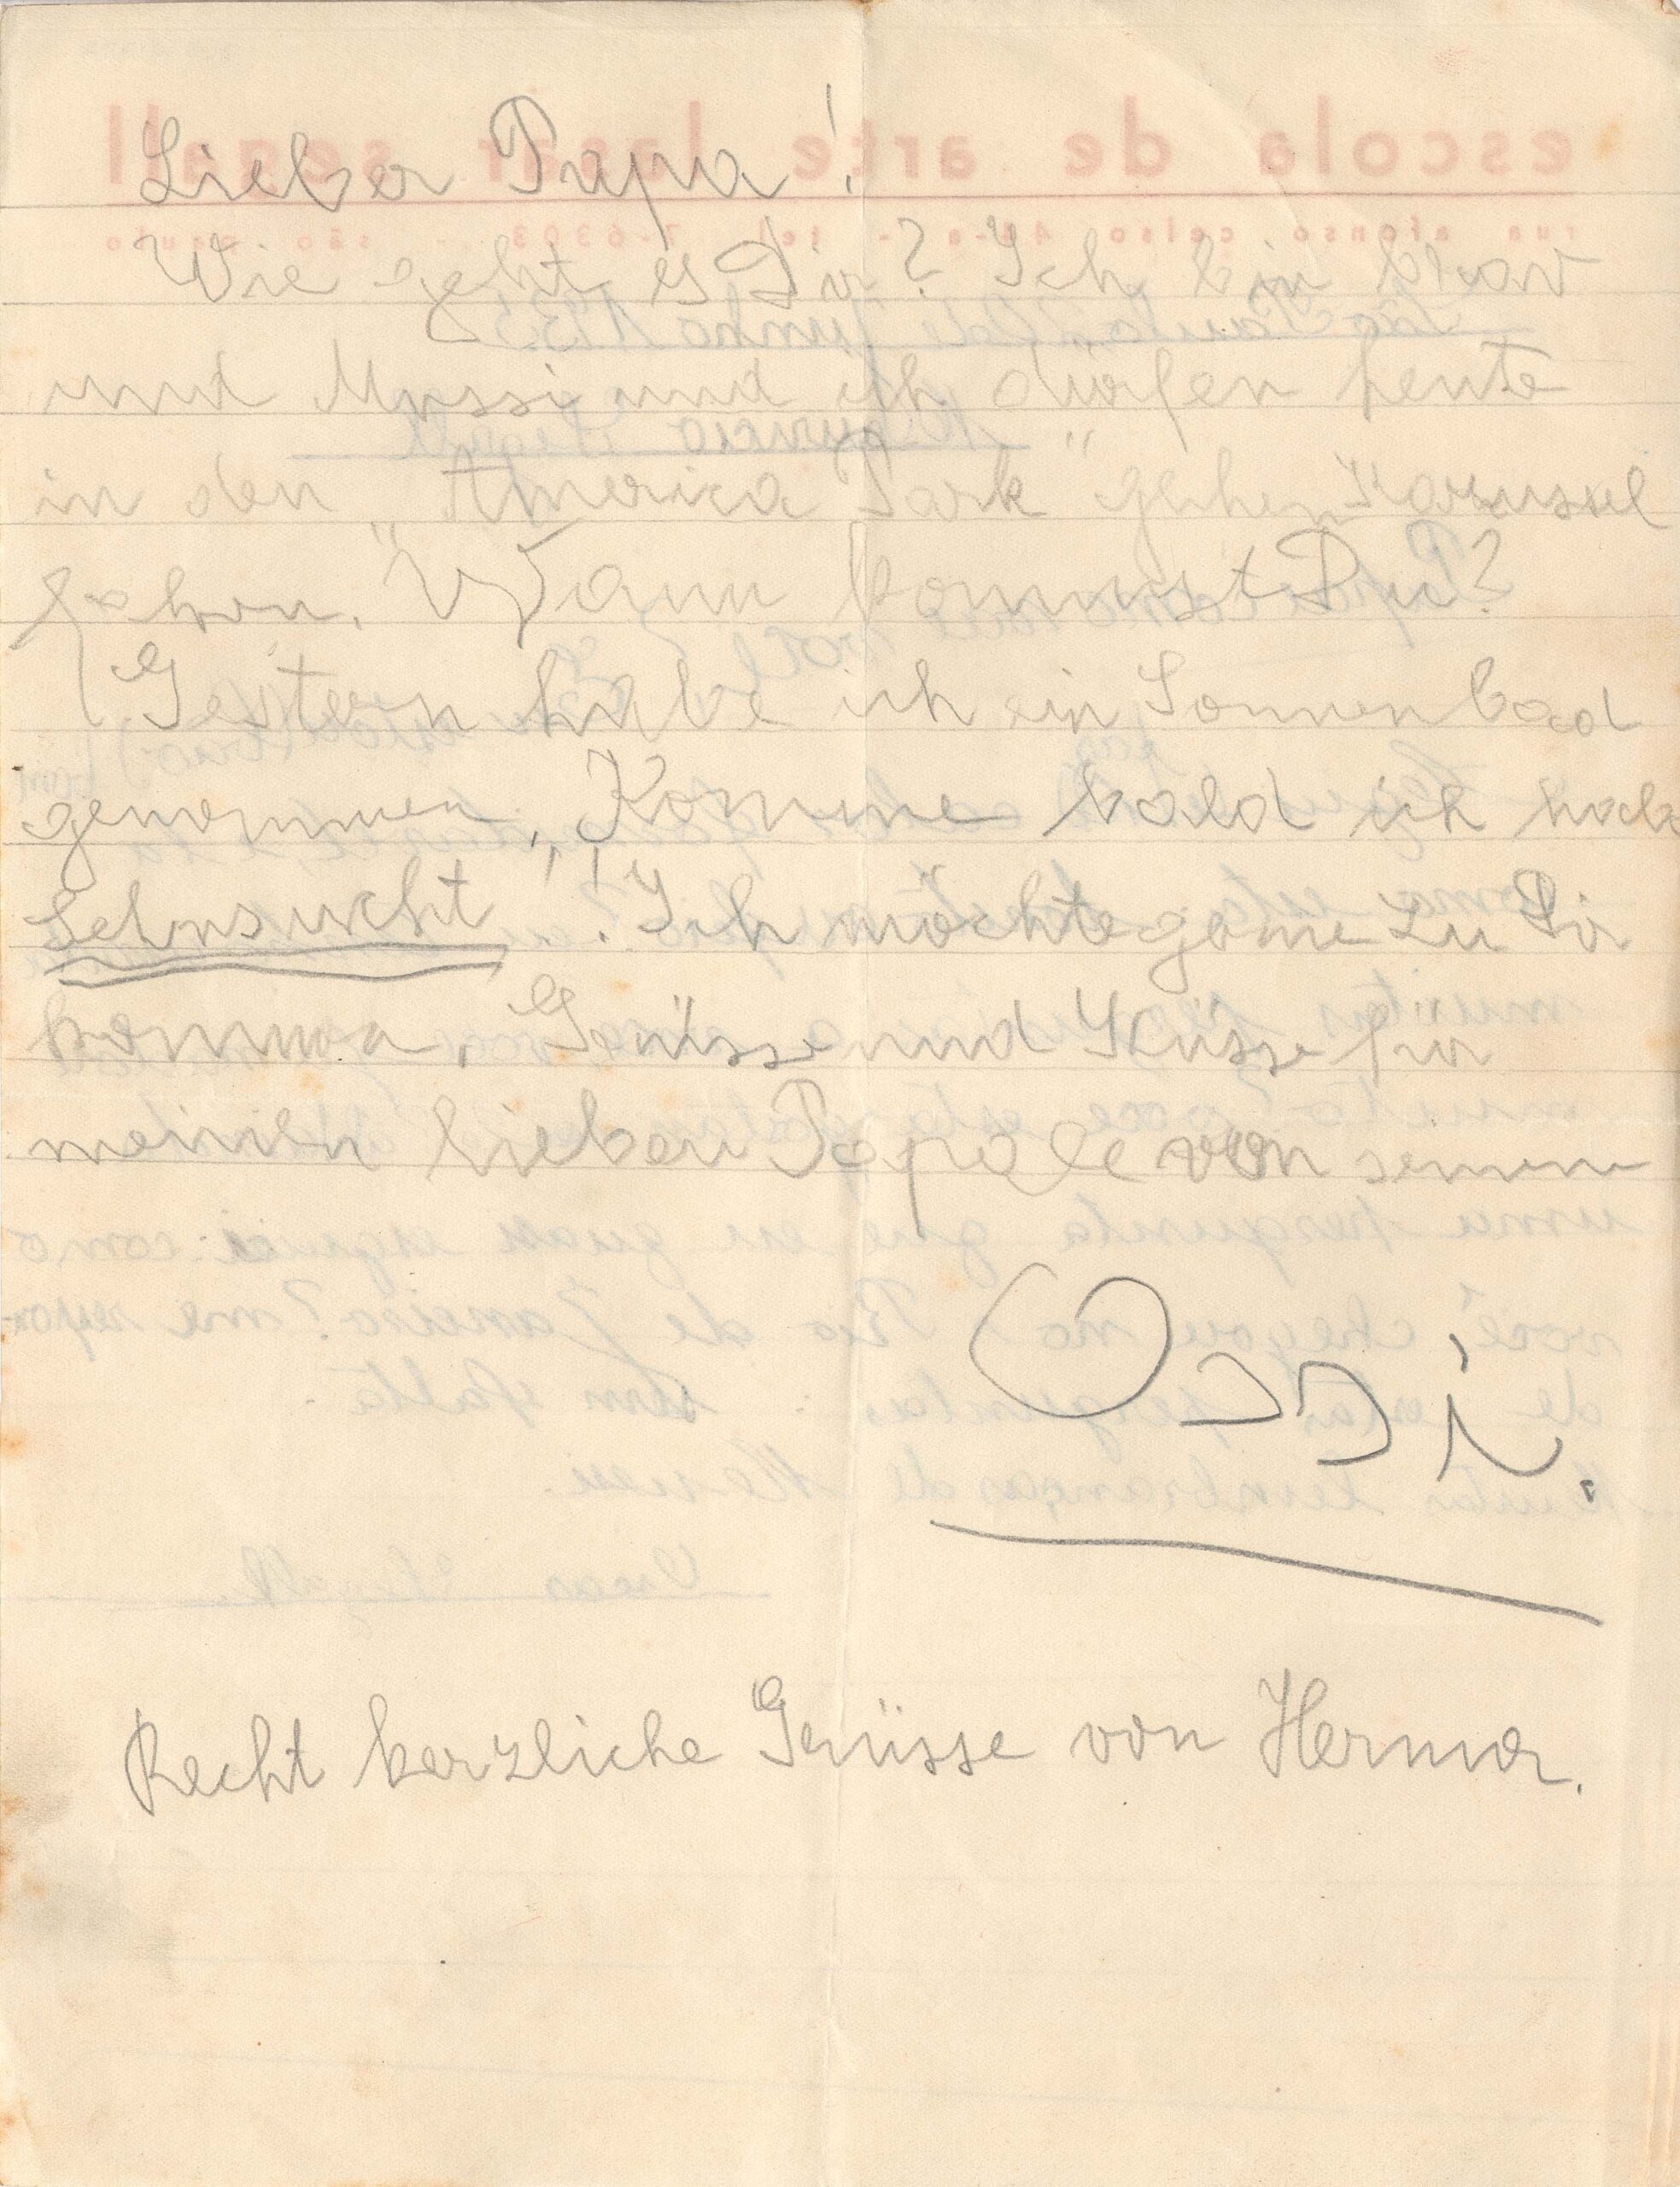 Lieber Papa!
Wie geht es Dir? Ich bin brav
und Mussi und ich dürfen heute
in den „America Park" gehen Karussel
fahren. Wann kommst Du?
Gestern habe ich ein Sonnenbad
genommen, Komme bald ich hab
Sehnsucht!!! Ich möchte gerne zu Dir
kommen. Grüsse und Küsse für
meinen lieben Papale von seinem
Ossi.
Recht herzliche Grüsse von Herma.